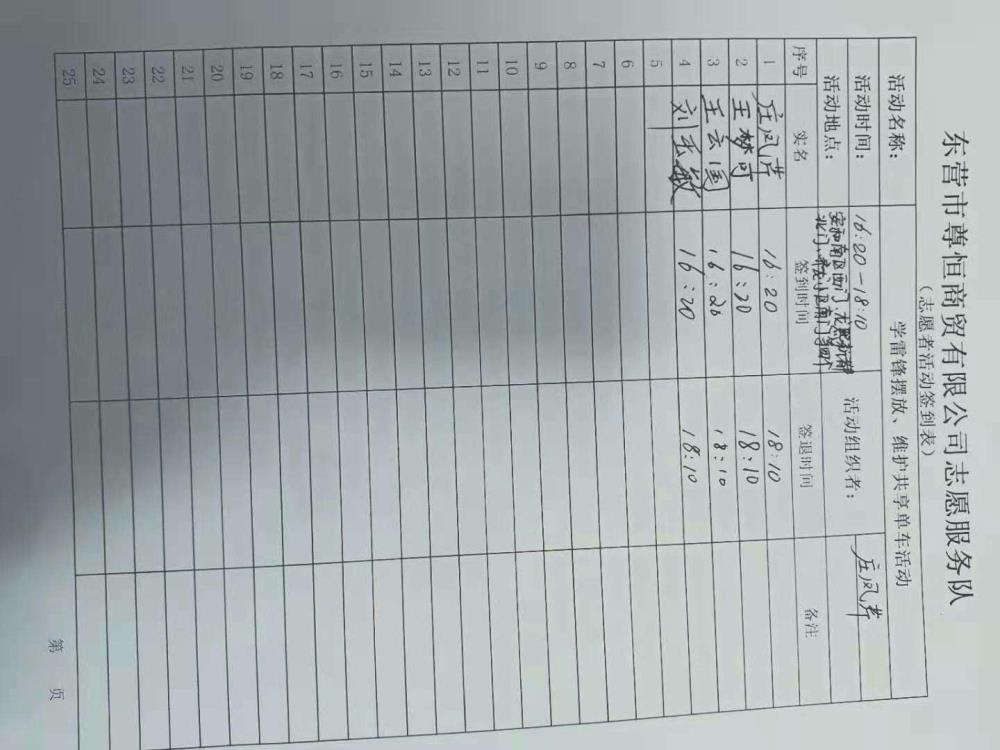 东营市尊恒商贸有限公司志愿服务队
（志愿者活动签到表）
活动名称： 学雷锋摆放、维护共享单车活动
活动时间： 16:20-18:10 活动组织者： 庄凤芹
活动地点： 安和南区西门、
北门、
序号 实名 签到时间 签退时间 备注
1 庄凤芹 16:20 18:10
2 王梦可 16:20 18:10
3 王云国 16:20 18:10
4 刘玉敏 16:20 18:10
5
6
7
8
9
10
11
12
13
14
15
16
17
18
19
20
21
22
23
24
25
第 页